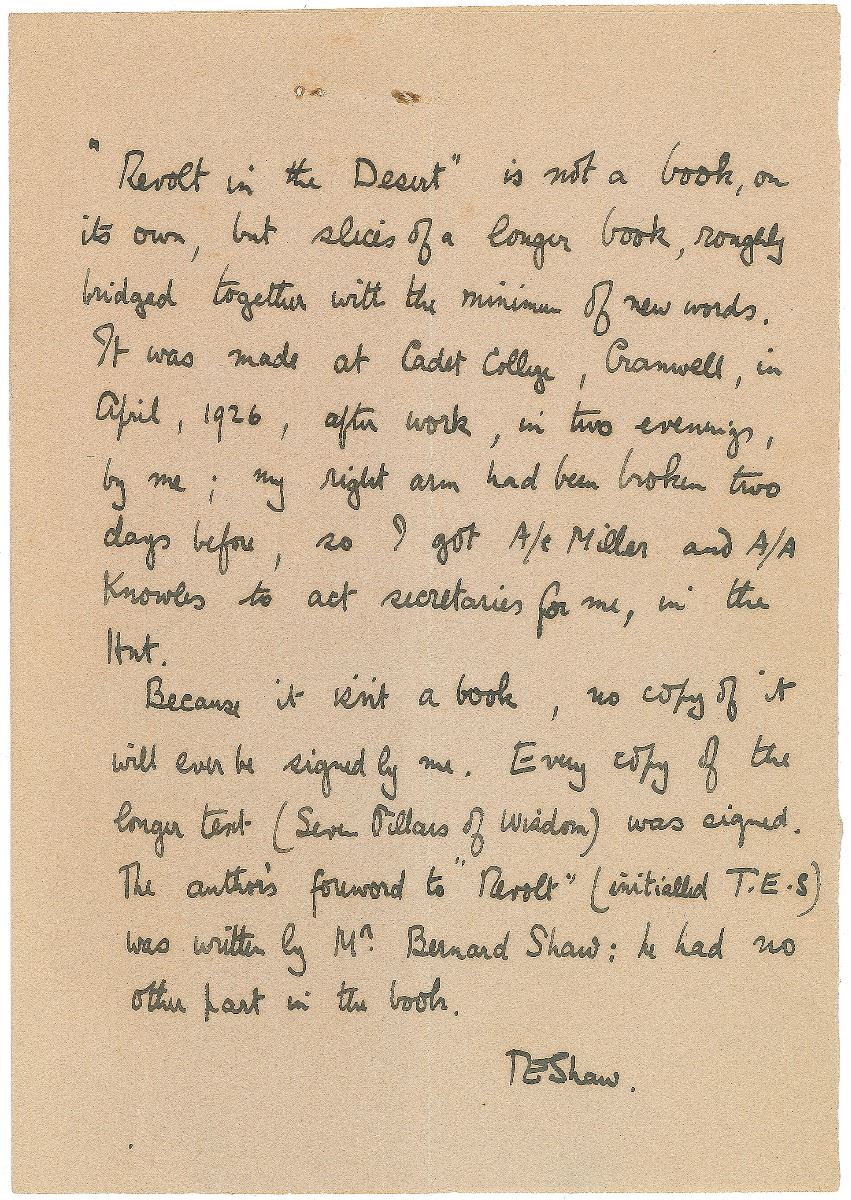 "Revolt in the Desert" is not a book, on
its own, but slices of a longer book, roughly
bridged together with the minimum of new words.
It was made at Cadet College, Cranwell, in
April, 1926, after work, in two evenings,
by me; my right arm had been broken two
days before, so I got A/c Miller and A/A
Knowles to act secretaries for me, in the
Hut.
Because it isn't a book, no copy of it
will ever be signed by me. Every copy of the
longer text (Seven Pillars of Wisdom) was signed.
The author's foreword to "Revolt" (initialled T.E.S)
was written by Mr. Bernard Shaw: he had no
other part in the book.
TEShaw.